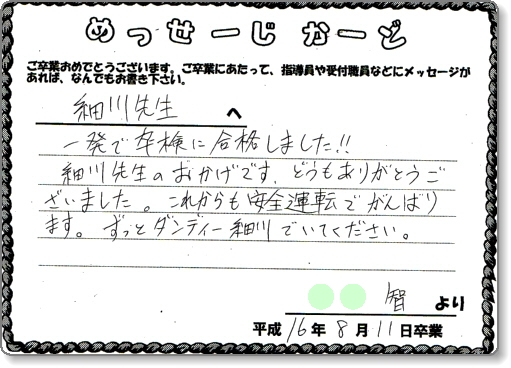 めっせーじ かーど
ご卒業おめでとうございます。ご卒業にあたって、指導員や受付職員などにメッセージが
あれば、なんでもお書き下さい。
細川先生 へ
一発で卒検に合格しました!!
細川先生のおかげです。どうもありがとうご
ざいました。これからも安全運転でがんばり
ます。ずっとダンディー細川でいてください。
智 より
平成 16 年 8 月 11 日卒業